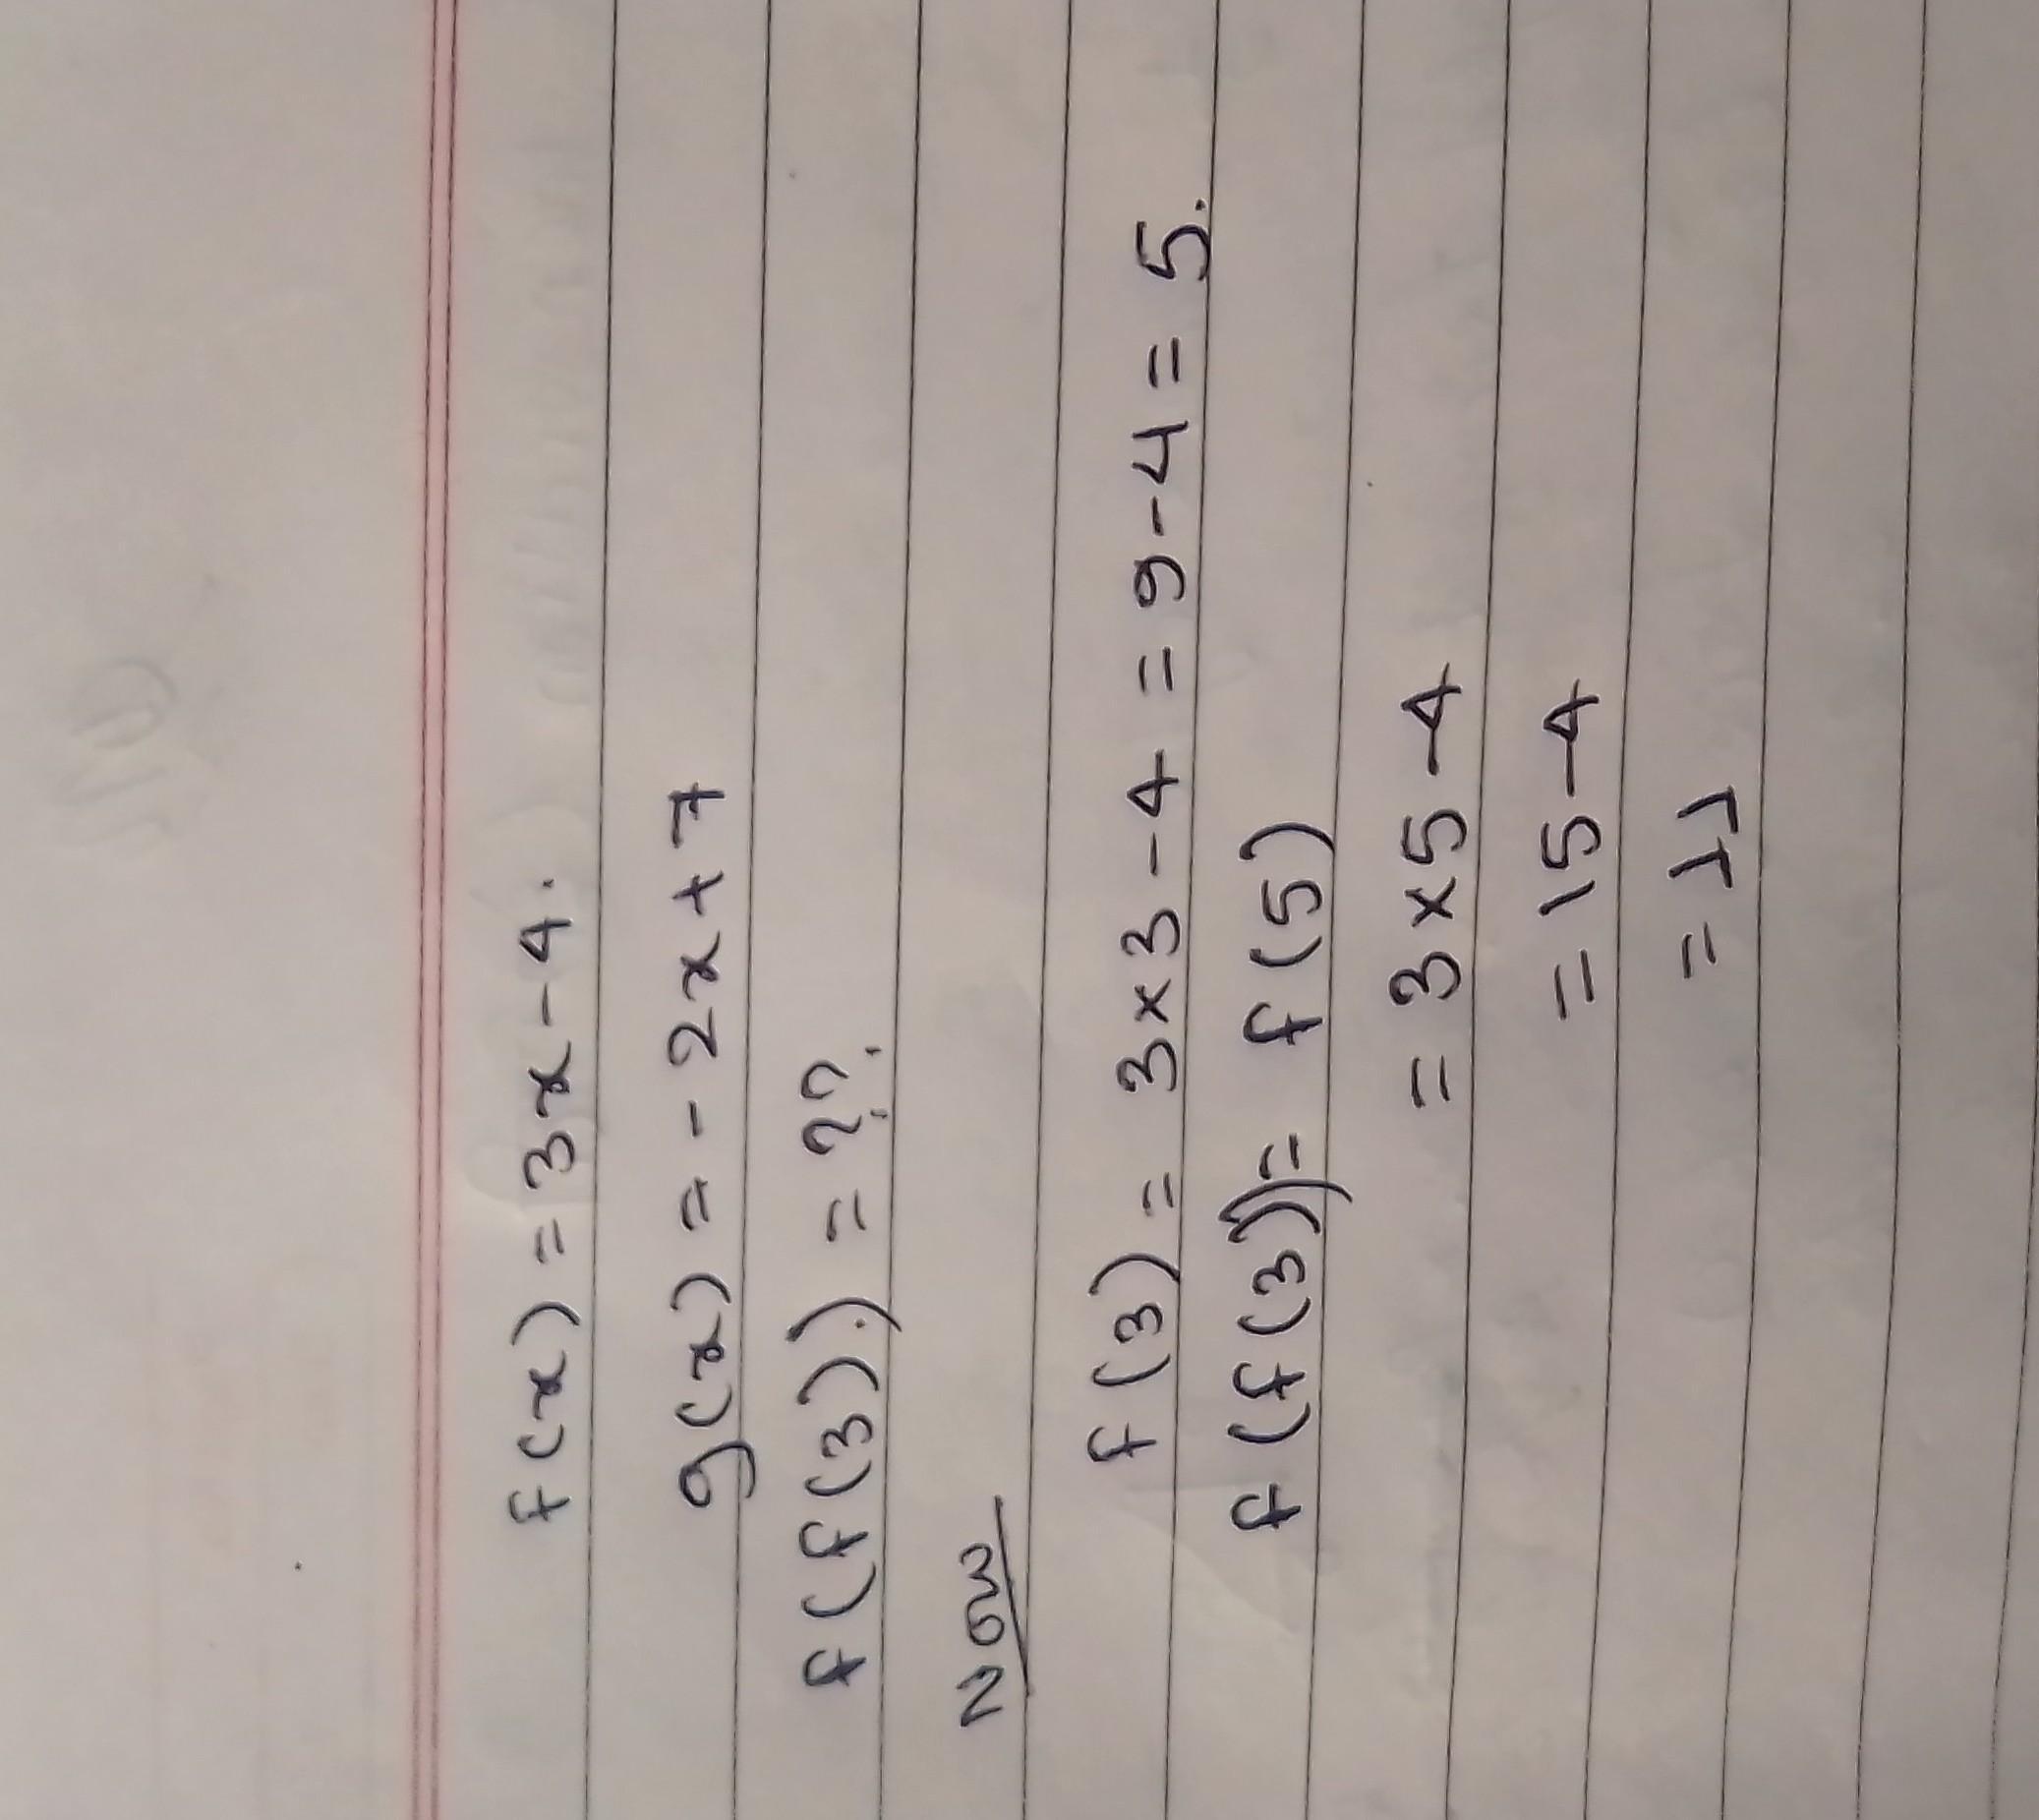 f(x) = 3x - 4.
g(x) = - 2x + 7
f(f(3)) = ??.
Now
f(3) = 3×3 - 4 = 9 - 4 = 5.
f(f(3)) = f(5)
= 3×5 - 4
= 15 - 4
= 11